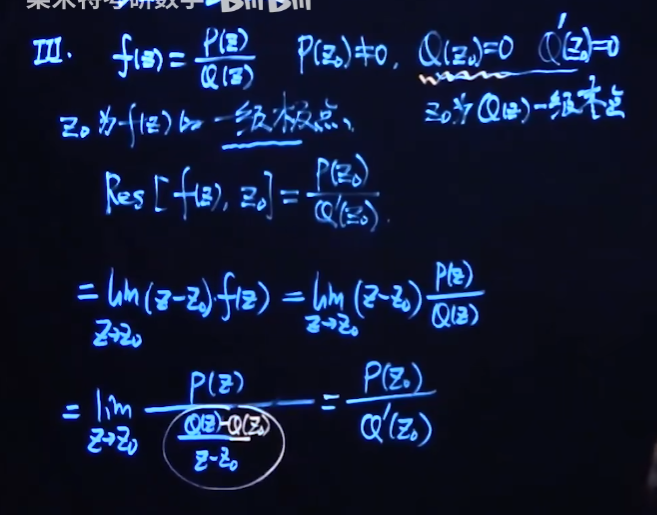 莱米特考研数学 bilibili
III. f(z) = P(z)/Q(z) P(z₀)≠0, Q(z₀)=0 Q'(z₀)=0
z₀为f(z)的一级极点, z₀为Q(z)一级零点
Res[f(z), z₀] = P(z₀)/Q'(z₀).
= lim z→z₀ (z-z₀)·f(z) = lim z→z₀ (z-z₀) P(z)/Q(z)
= lim z→z₀ P(z)/((Q(z)-Q(z₀))/(z-z₀)) = P(z₀)/Q'(z₀)